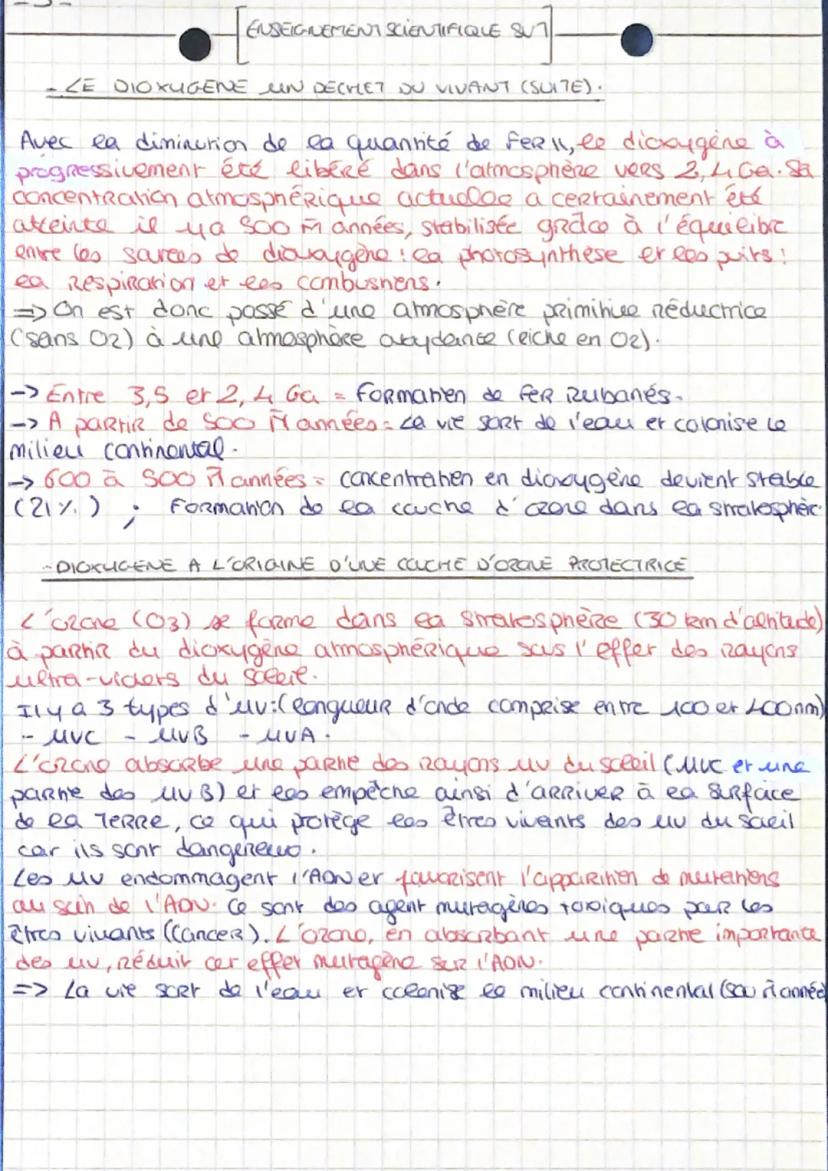 - 3 -
[ENSEIGNEMENT SCIENTIFIQUE SVT]
- LE DIOXYGENE UN DECHET DU VIVANT (SUITE).
Avec la diminution de la quantité de Fer II, le dioxygène à
progressivement été libéré dans l'atmosphère vers 2,4 Ga. Sa
concentration atmosphérique actuelle a certainement été
atteinte il y a 500 M années, stabilisée grâce à l'équilibre
entre les sources de dioxygène : la photosynthèse et les puits :
la respiration et les combustions.
=> On est donc passé d'une atmosphère primitive réductrice
(sans O2) à une atmosphère oxydante (riche en O2).
-> Entre 3,5 et 2,4 Ga = Formation de fer rubanés.
-> A partir de 500 M années = La vie sort de l'eau et colonise le
milieu continental.
-> 600 à 500 M années = concentration en dioxygène devient stable
(21%) ; Formation de la couche d'ozone dans la stratosphère.
- DIOXYGENE A L'ORIGINE D'UNE COUCHE D'OZONE PROTECTRICE
L'ozone (O3) se forme dans la stratosphère (30 km d'altitude)
à partir du dioxygène atmosphérique sous l'effet des rayons
ultra-violets du soleil.
Il y a 3 types d'UV : (longueur d'onde comprise entre 100 et 400 nm)
- UVC - UVB - UVA.
L'ozone absorbe une partie des rayons UV du soleil (UVC et une
partie des UVB) et les empêche ainsi d'arriver à la surface
de la Terre, ce qui protège les êtres vivants des UV du soleil
car ils sont dangereux.
Les UV endommagent l'ADN et favorisent l'apparition de mutations
au sein de l'ADN. Ce sont des agent mutagènes toxiques pour les
êtres vivants (Cancer). L'ozone, en absorbant une partie importante
des UV, réduit cet effet mutagène sur l'ADN.
=> La vie sort de l'eau et colonise le milieu continental (500 M années